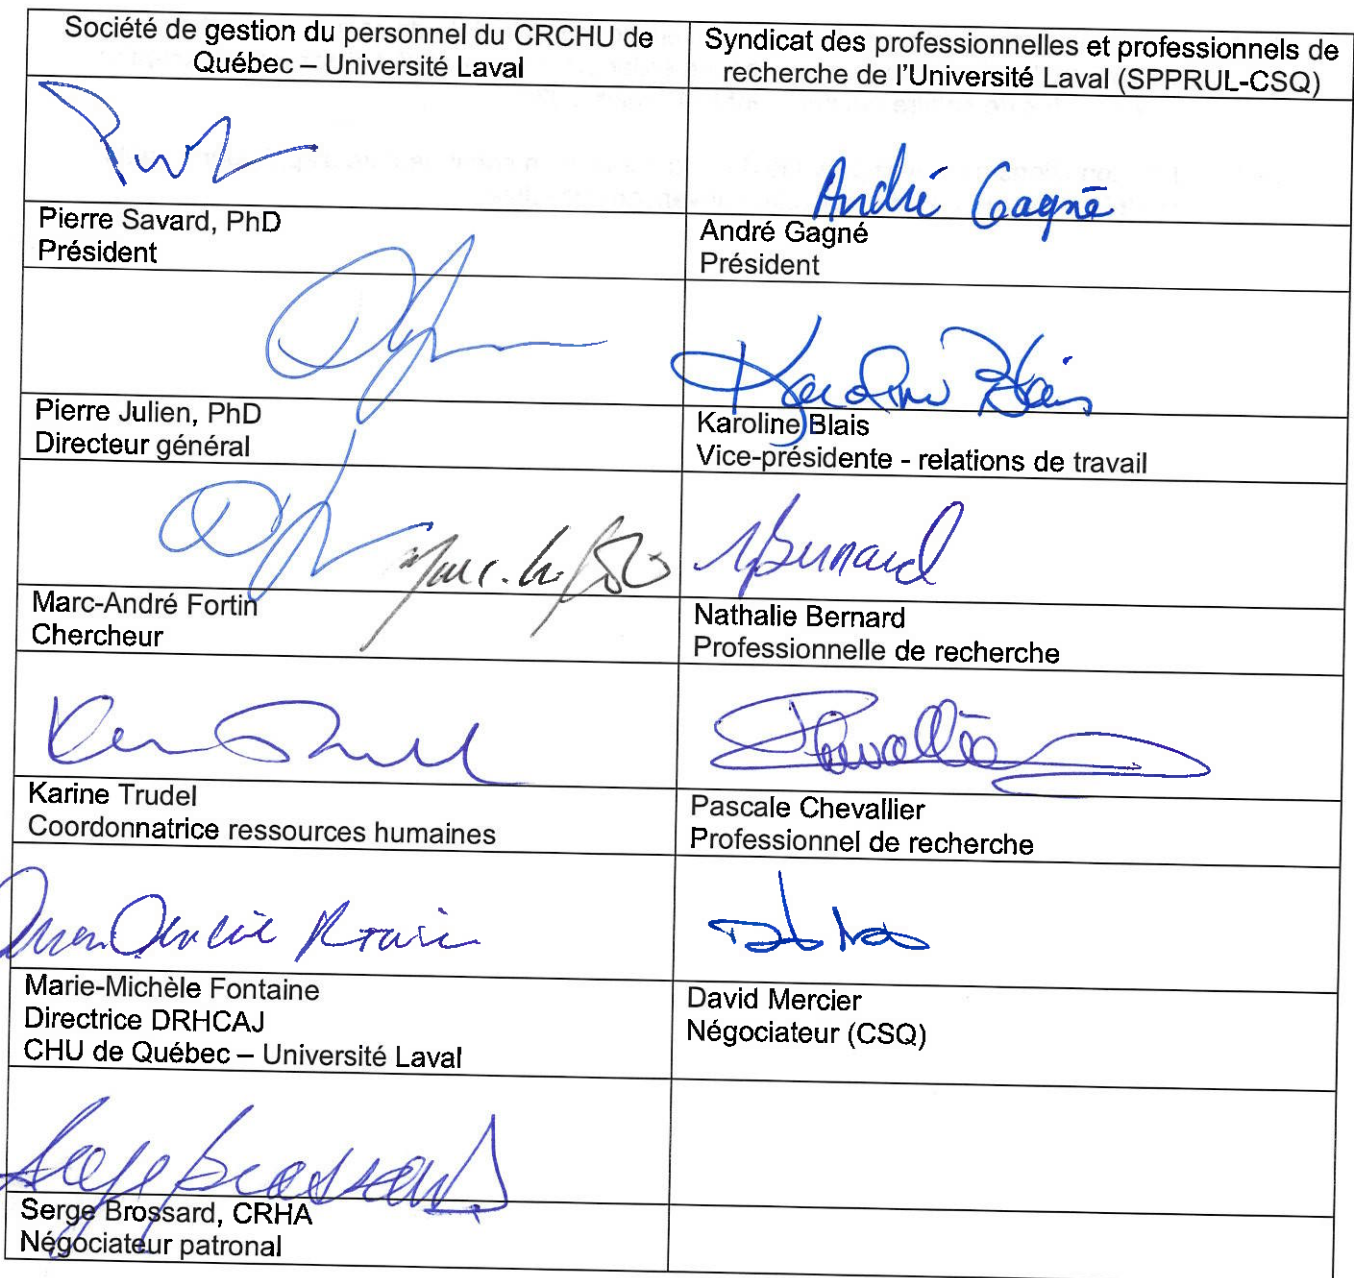 Société de gestion du personnel du CRCHU de
Québec – Université Laval
Syndicat des professionnelles et professionnels de
recherche de l'Université Laval (SPPRUL-CSQ)
Pierre Savard, PhD
Président
André Gagné
André Gagné
Président
Pierre Julien, PhD
Directeur général
Karoline Blais
Karoline Blais
Vice-présidente - relations de travail
Marc-André Fortin
Chercheur
NBernard
Nathalie Bernard
Professionnelle de recherche
Karine Trudel
Coordonnatrice ressources humaines
Pascale Chevallier
Professionnel de recherche
Marie-Michèle Fontaine
Directrice DRHCAJ
CHU de Québec – Université Laval
David Mercier
Négociateur (CSQ)
Serge Brossard
Serge Brossard, CRHA
Négociateur patronal